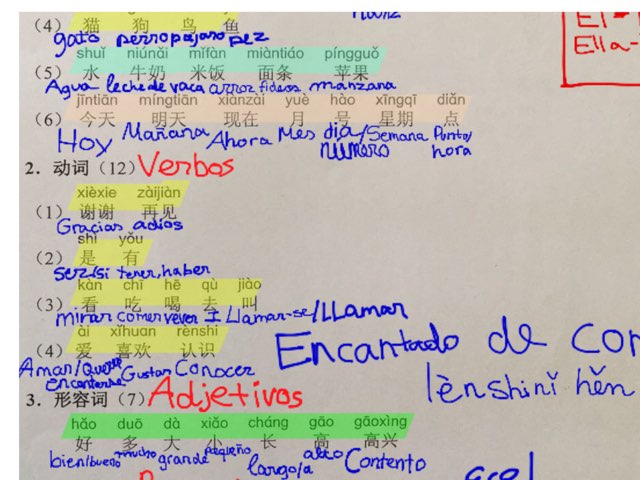 (4) 猫 狗 鸟 鱼
El-
Ella-
gato perro pajaro pez
shuǐ niúnǎi mǐfàn miàntiáo píngguǒ
(5) 水 牛奶 米饭 面条 苹果
Agua leche de vaca arroz fideos manzana
jīntiān míngtiān xiànzài yuè hào xīngqī diǎn
(6) 今天 明天 现在 月 号 星期 点
Hoy Mañana Ahora Mes día/ Semana Punto/
numero hora
2. 动词（12） Verbos
xièxie zàijiàn
(1) 谢谢 再见
Gracias adios
shì yǒu
(2) 是 有
ser/si tener, haber
kàn chī hē qù jiào
(3) 看 吃 喝 去 叫
mirar comer vever Ir Llamar-se/LLamar
ài xǐhuan rènshi
(4) 爱 喜欢 认识
Amar/Querer Gustar Conocer
encantarse
Encantado de con
lènshinǐ hěn
3. 形容词（7） Adjetivos
hǎo duō dà xiǎo cháng gāo gāoxìng
好 多 大 小 长 高 高兴
bien/bueno mucho grande pequeño largo/a alto Contento